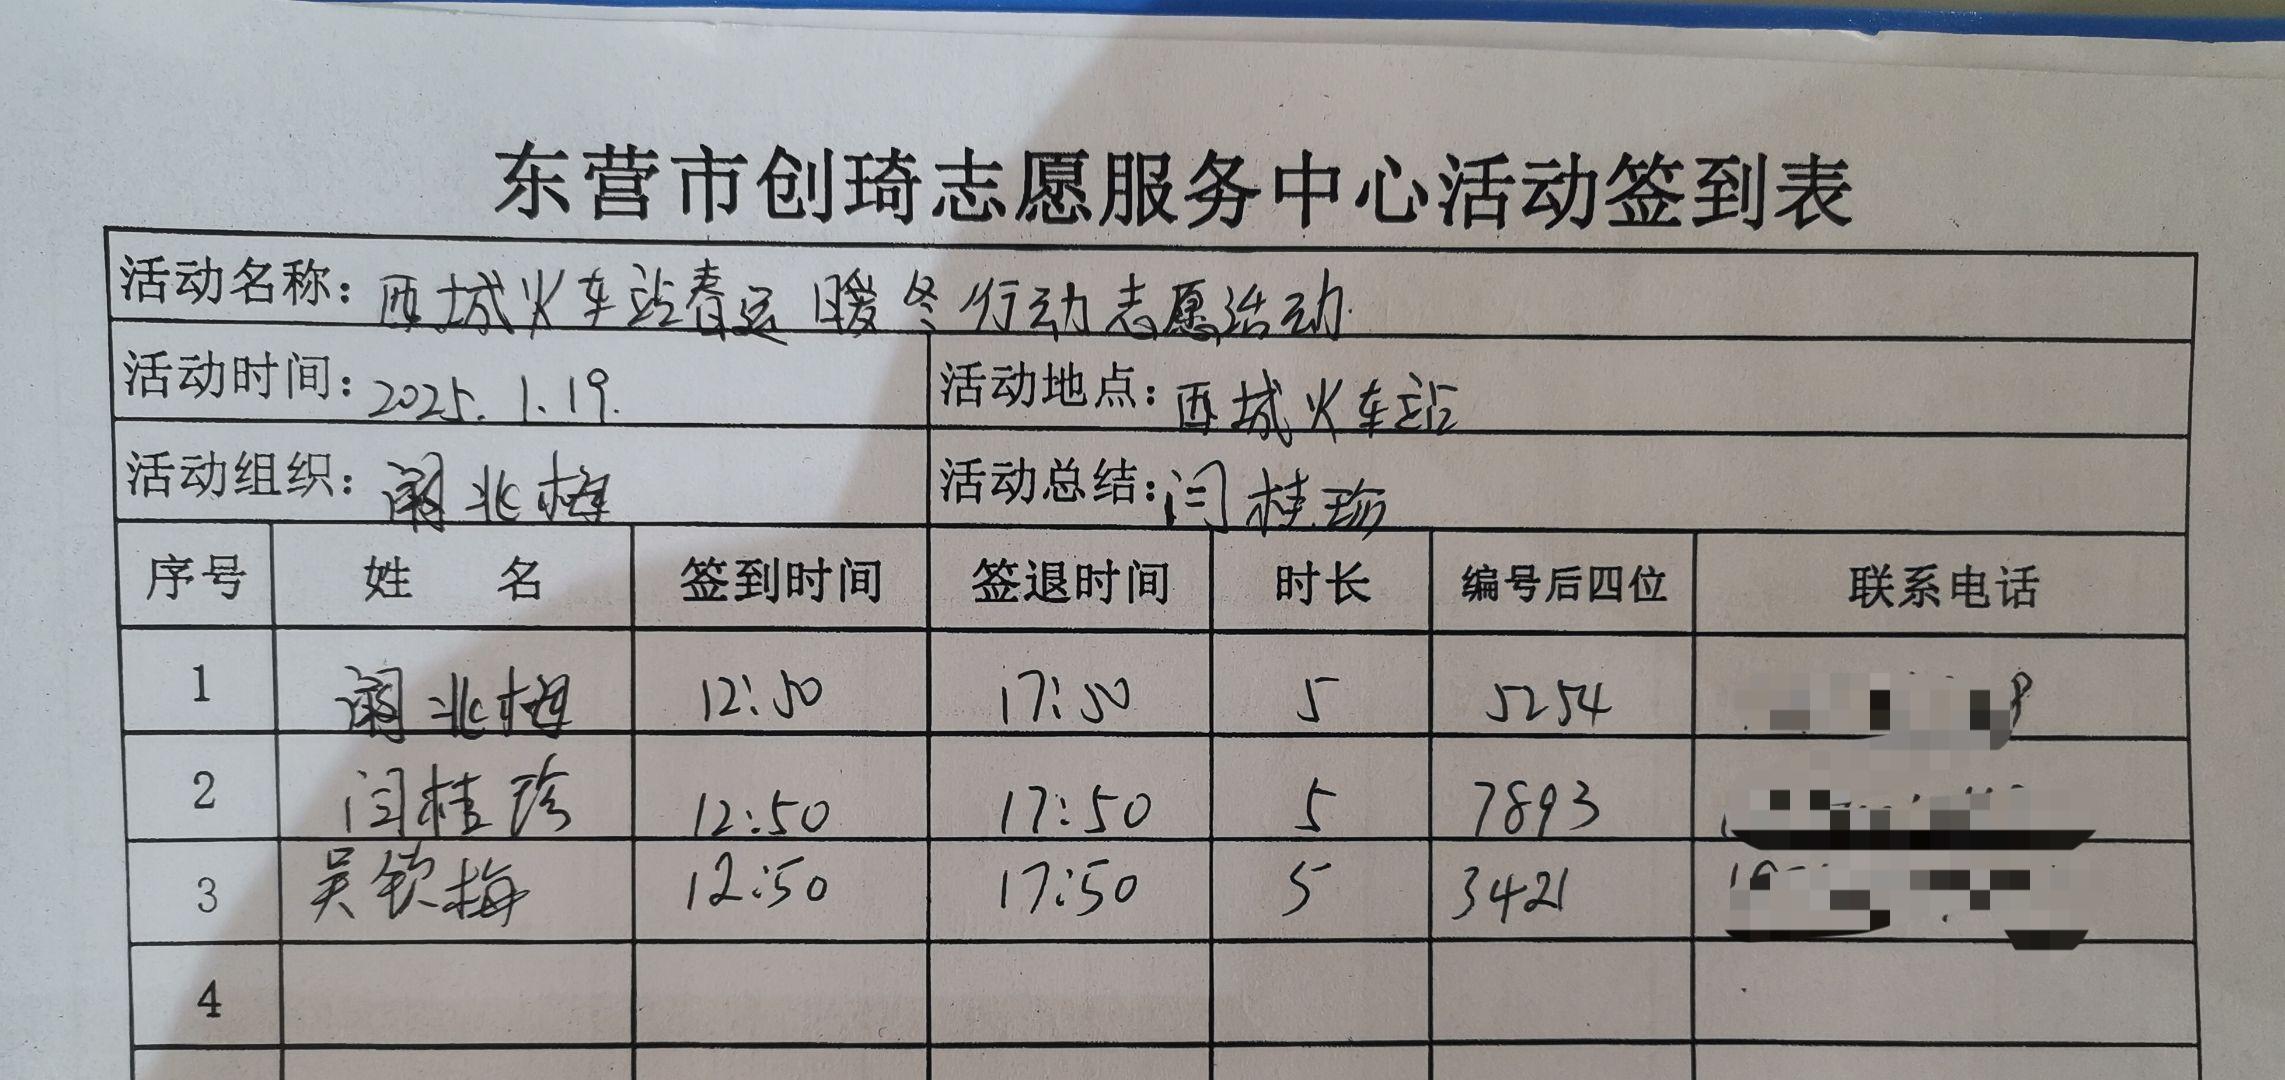 东营市创琦志愿服务中心活动签到表
活动名称: 西城火车站春运 暖冬行动志愿活动
活动时间: 2025.1.19. 活动地点: 西城火车站
活动组织: 北梅 活动总结: 闫桂珍
序号 姓 名 签到时间 签退时间 时长 编号后四位 联系电话
1 北梅 12:50 17:50 5 5254
2 闫桂珍 12:50 17:50 5 7893
3 吴钦梅 12:50 17:50 5 3421
4